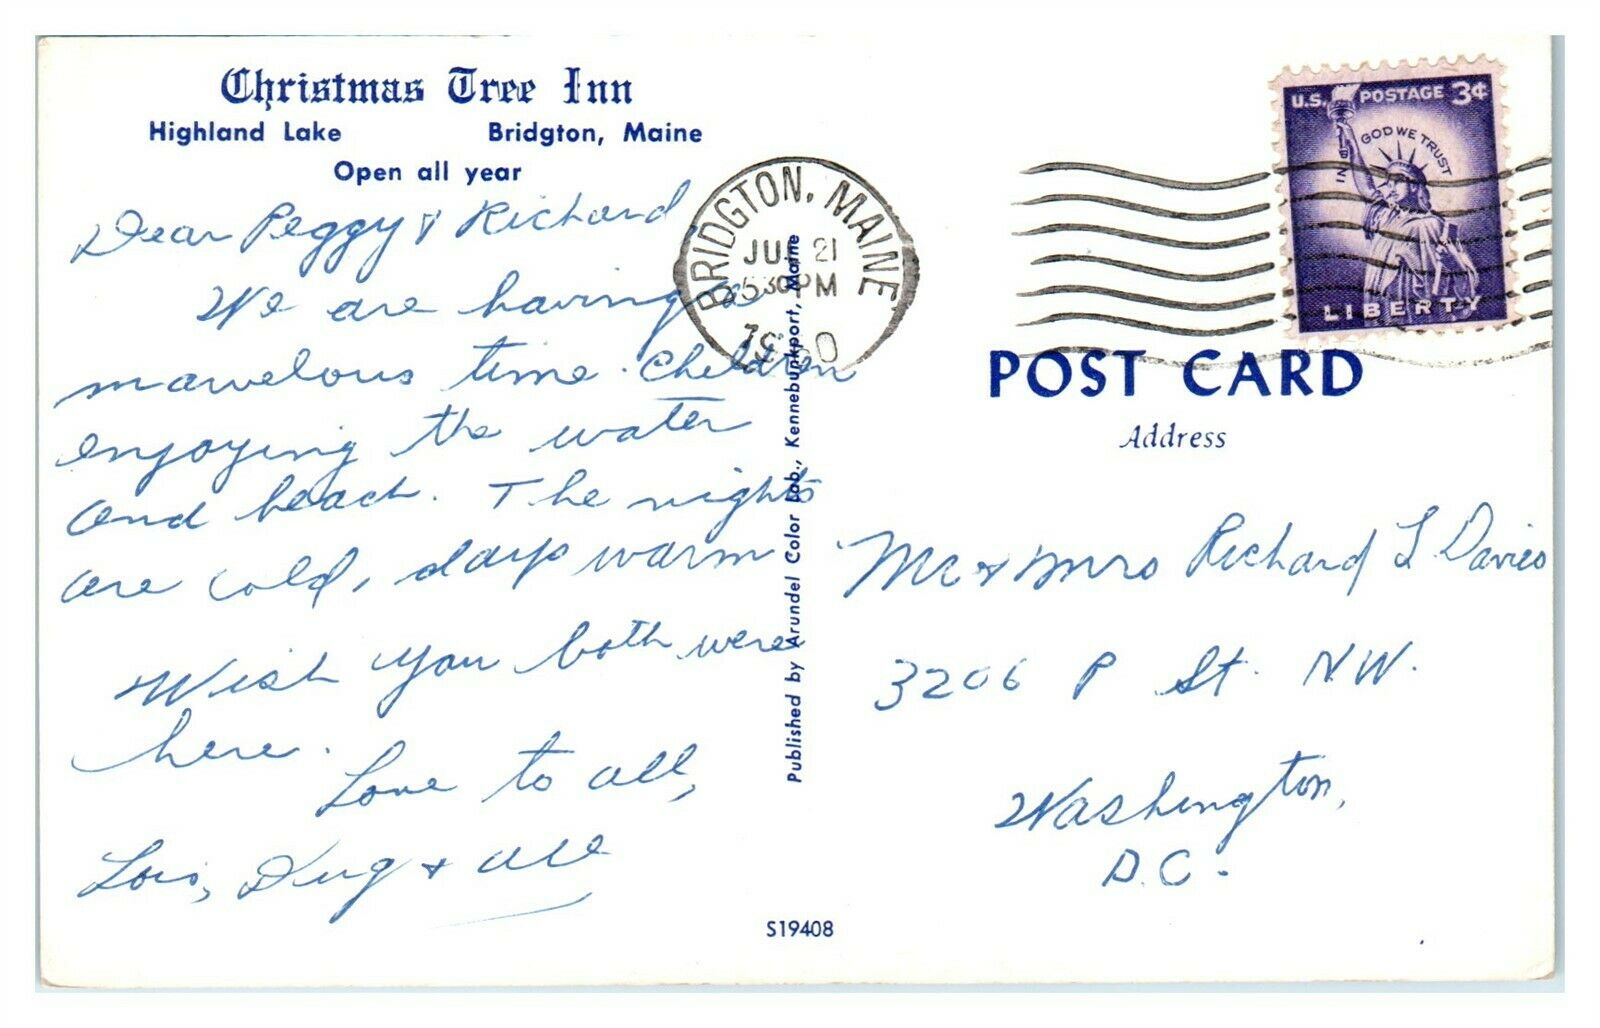 Christmas Tree Inn
Highland Lake Bridgton, Maine
Open all year
Dear Peggy & Richard
We are having a
marvelous time. Children
enjoying the water
and beach. The nights
are cold, days warm
Wish you both were
here.
Love to all,
Lois, & all
BRIDGTON, MAINE
21
530PM
Published by Arundel Color Lab., Kennebunkport, Maine
S19408
U.S. POSTAGE 3¢
IN GOD WE TRUST
LIBERTY
POST CARD
Address
Mr & Mrs Richard L Davies
3206 P St. N.W.
Washington,
D.C.